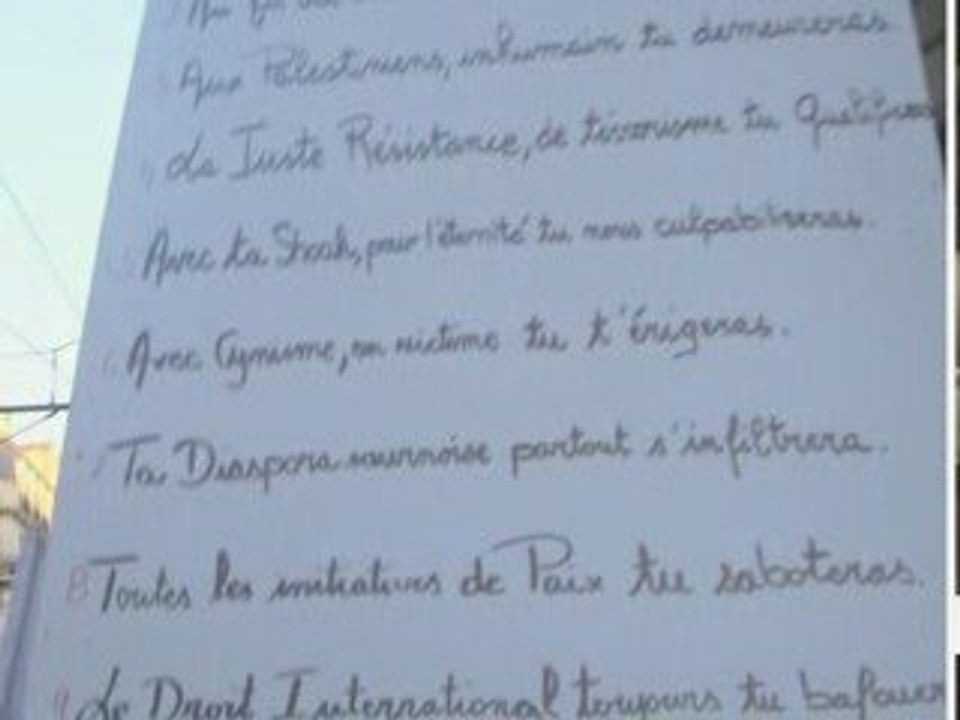 Aux Palestiniens, inhumain tu demeureras
La Juste Résistance, de terrorisme tu
Avec ta Shoah, pour l'éternité tu nous culpabiliseras.
Avec Cynisme, en victime tu t'érigeras.
Ta Diaspora sournoise partout s'infiltrera.
8 Toutes les initiatives de Paix tu saboteras.
9 Le Droit International toujours tu